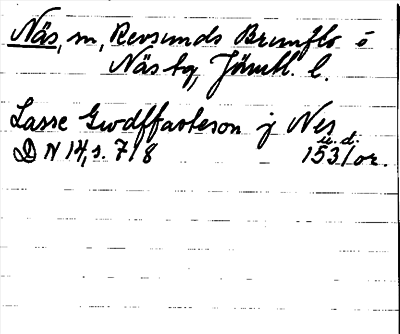 Näs, m, Revsunds Brunflo o
Näs tg, Jämtl. l.
Lasse Gwdffasteson j Nes
u. d.
D N 14, s. 718 1531 or.